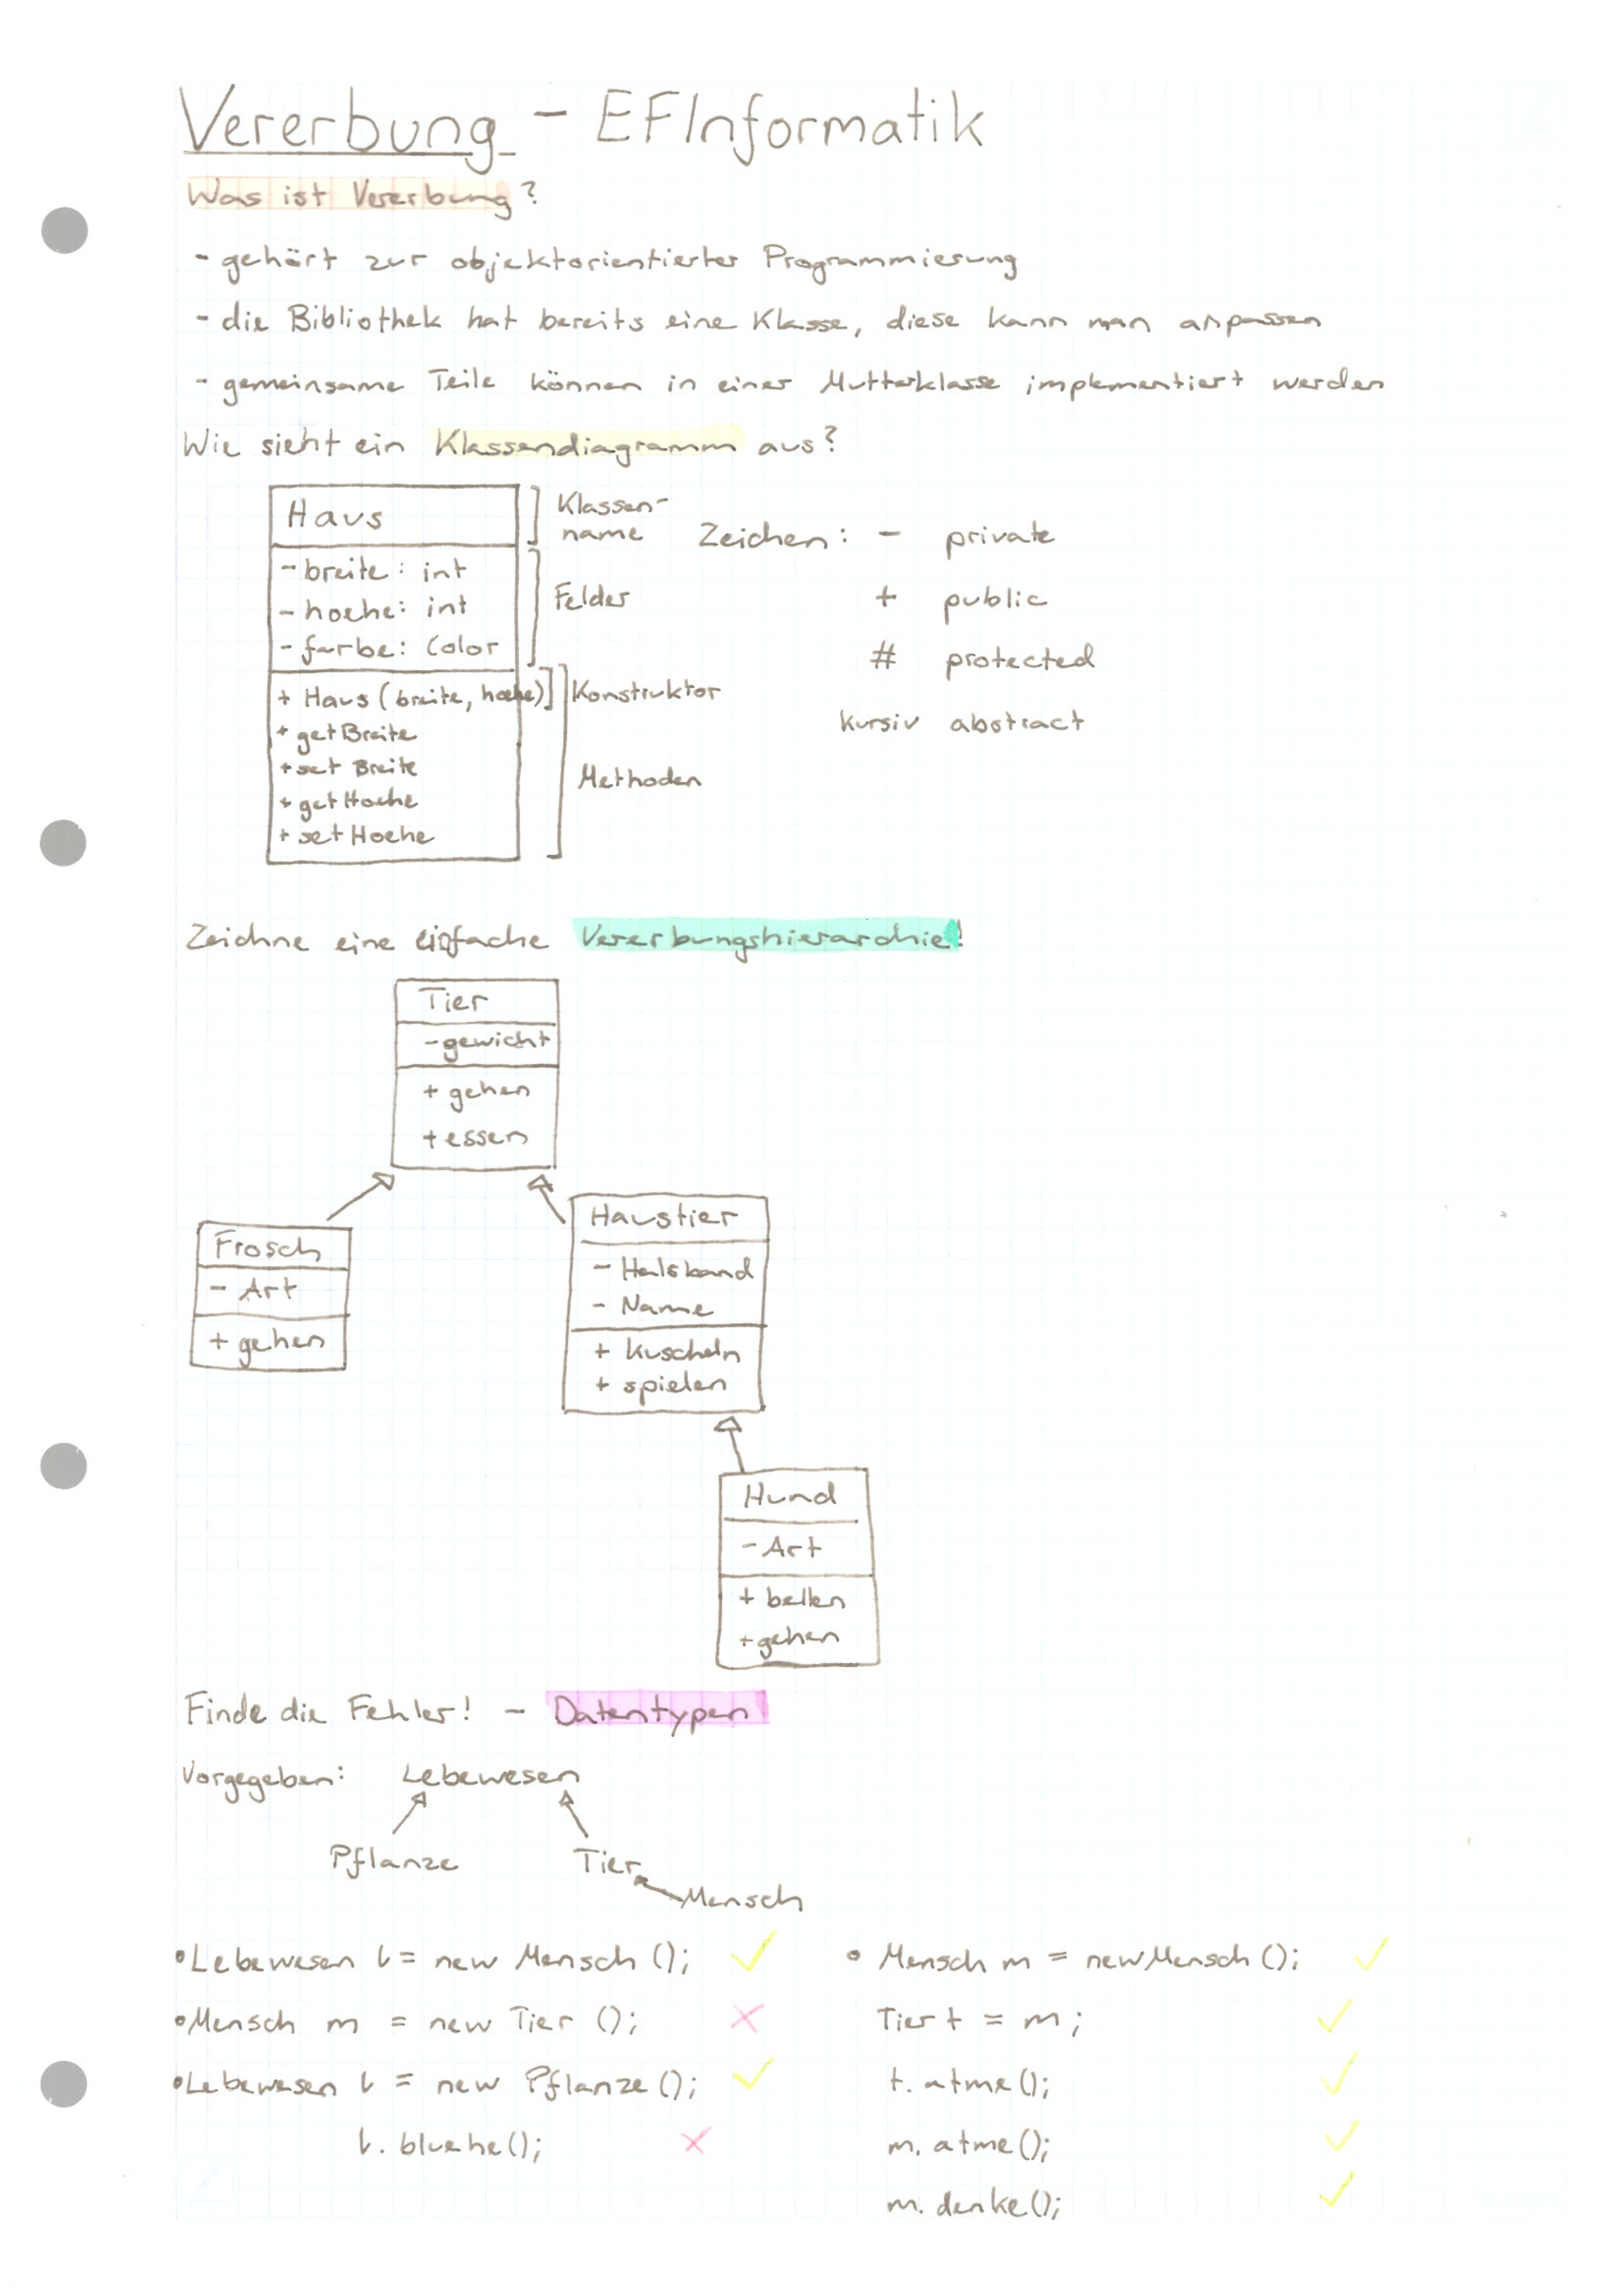 Vererbung - EFInformatik
Was ist Vererbung?
- gehört zur objektorientierter Programmierung
- die Bibliothek hat bereits eine Klasse, diese kann man anpassen
- gemeinsame Teile können in einer Mutterklasse implementiert werden
Wie sieht ein Klassendiagramm aus?
Haus
- breite: int
- hoehe: int
- farbe: Color
+ Haus (breite, hoehe)
+ getBreite
+ set Breite
+ getHoehe
+ setHoehe
Klassen-
name
Felder
Konstruktor
Methoden
Zeichen: - private
+ public
# protected
kursiv abstract
Zeichne eine einfache Vererbungshierarchie!
Tier
- gewicht
+ gehen
+ essen
Frosch
- Art
+ gehen
Haustier
- Halsband
- Name
+ kuscheln
+ spielen
Hund
- Art
+ bellen
+ gehen
Finde die Fehler! - Datentypen
Vorgegeben: Lebewesen
Pflanze Tier
Mensch
• Lebewesen l = new Mensch (); ✓
• Mensch m = new Tier (); ✗
• Lebewesen l = new Pflanze (); ✓
l. bluehe(); ✗
• Mensch m = new Mensch (); ✓
Tier t = m; ✓
t. atme(); ✓
m. atme(); ✓
m. denke(); ✓